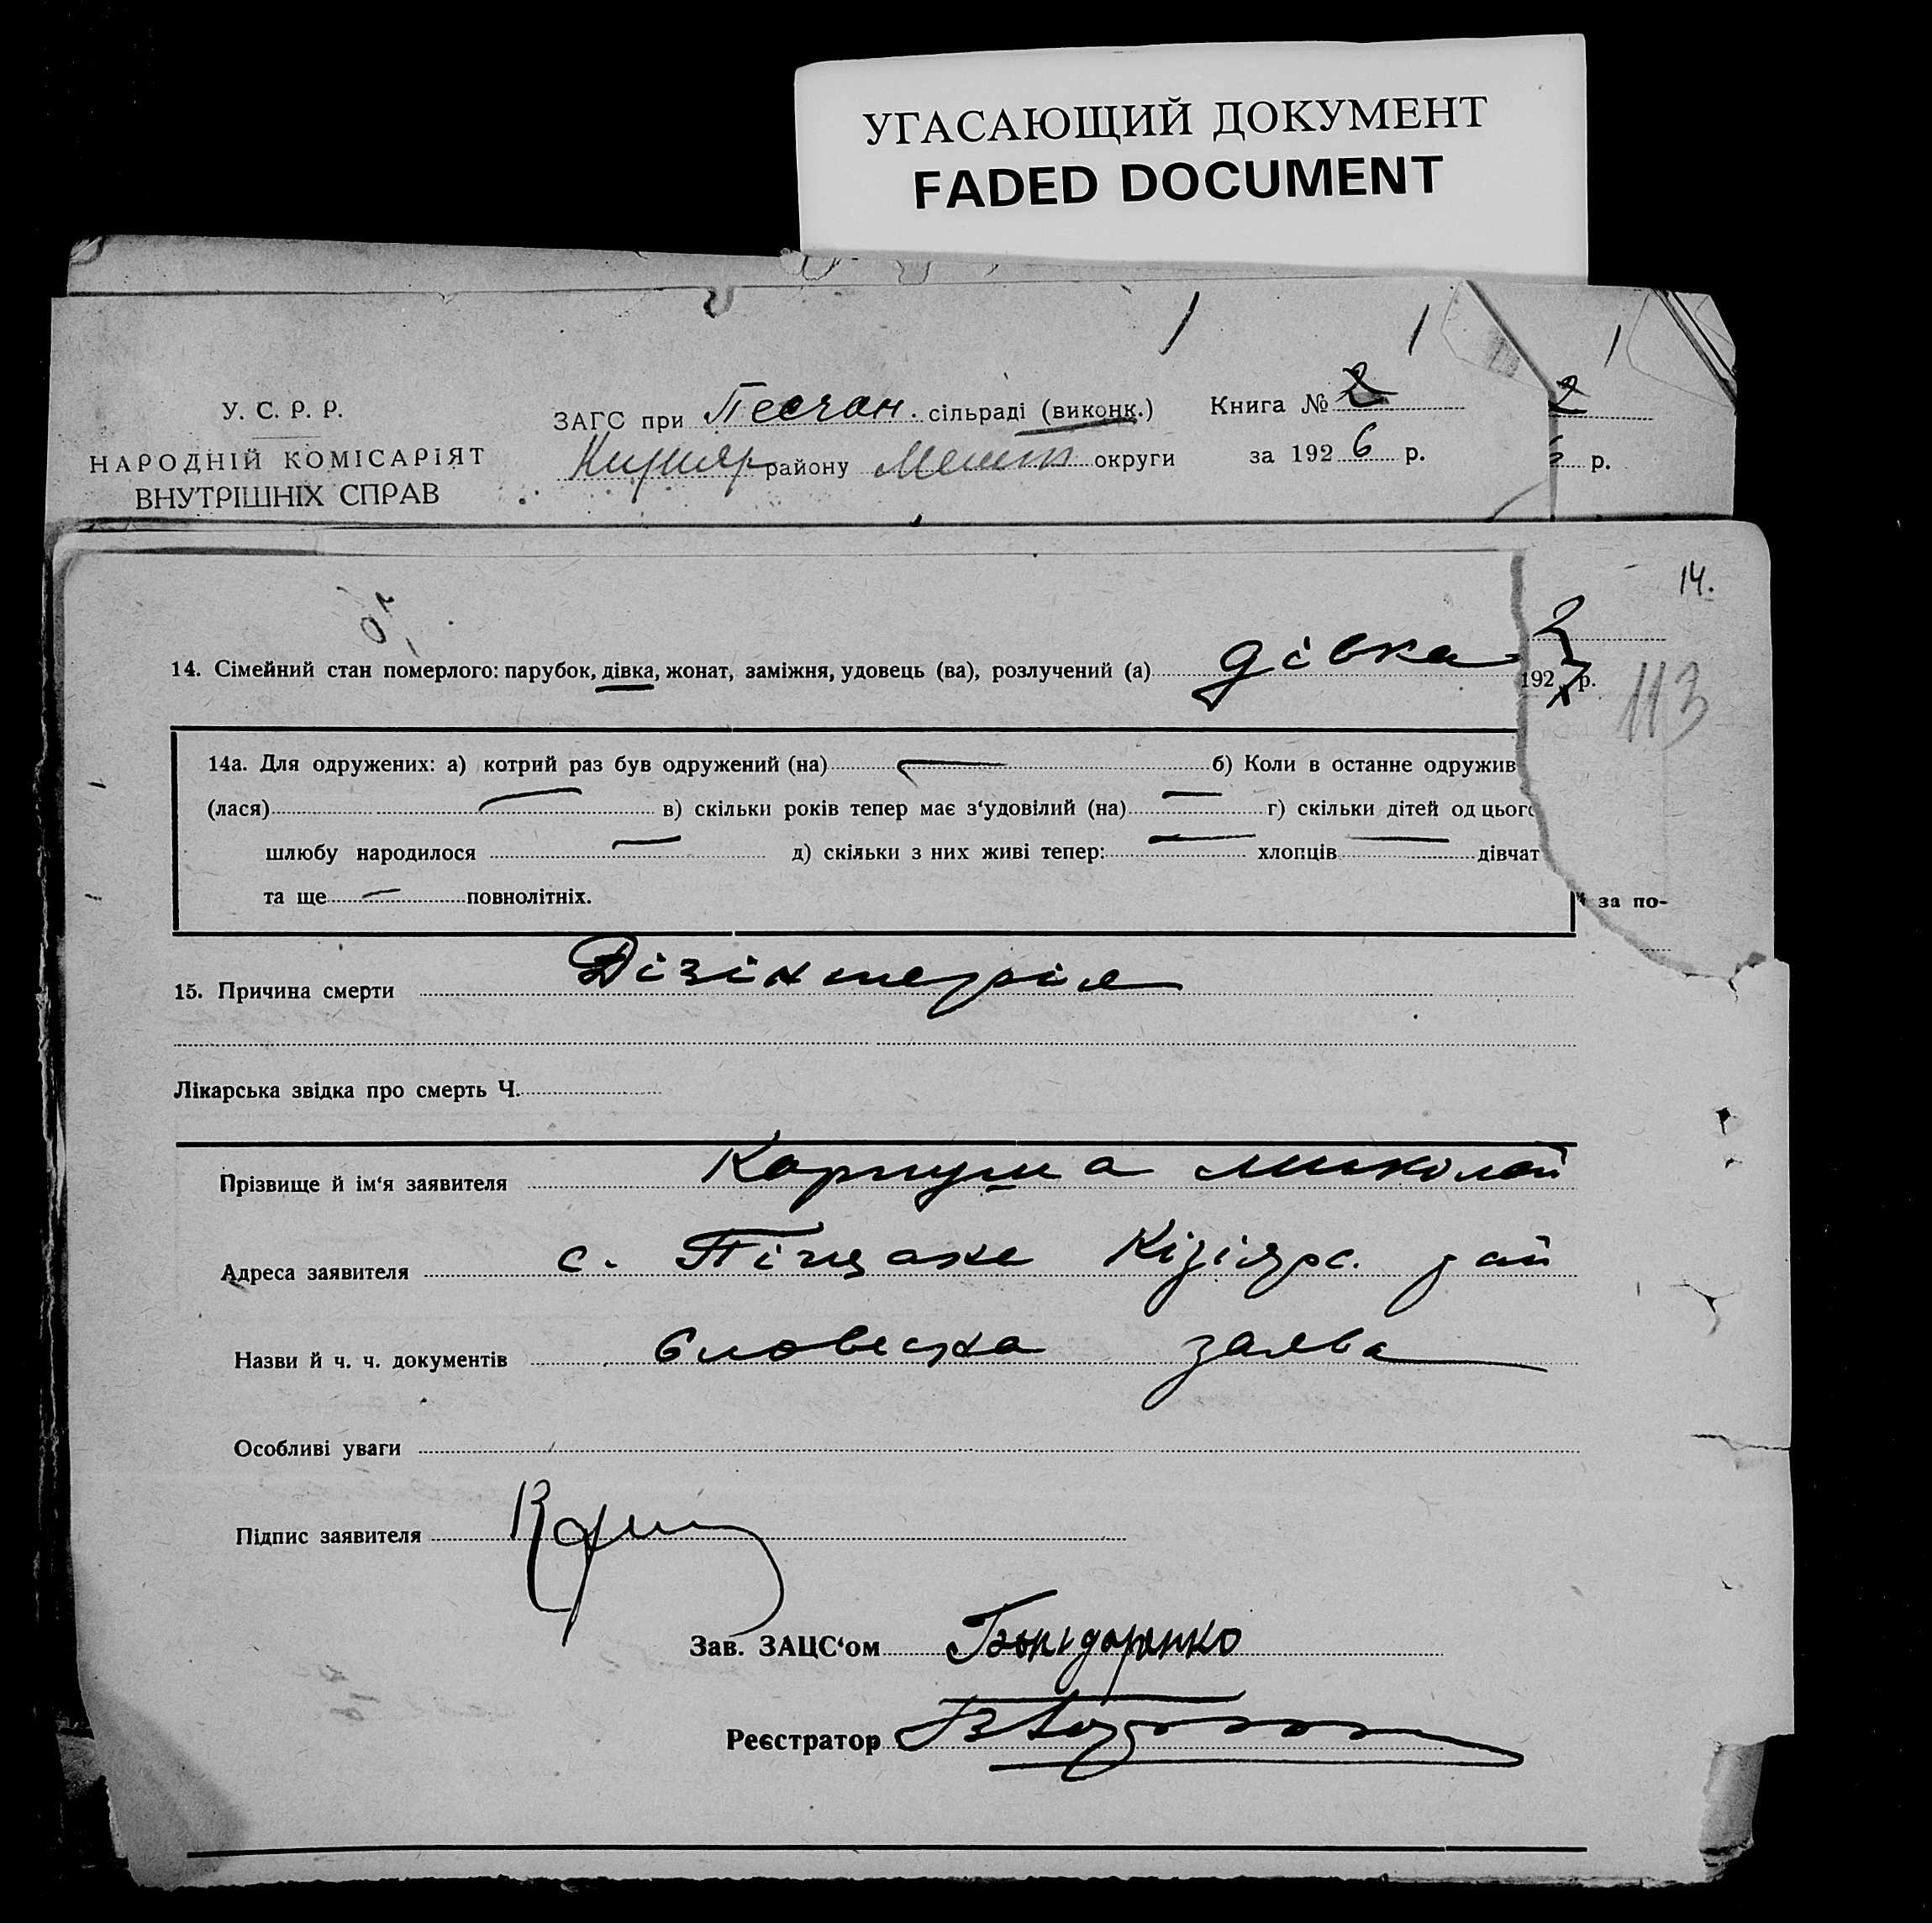 УГАСАЮЩИЙ ДОКУМЕНТ
FADED DOCUMENT
У. С. Р. Р.
НАРОДНІЙ КОМІСАРІЯТ
ВНУТРІШНІХ СПРАВ
ЗАГС при Песчан. сільраді (виконк.)
району Меліт округи
Книга № 2
за 1926 р.
2
р.
14.
2
1927 р.
113
14. Сімейний стан померлого: парубок, дівка, жонат, заміжня, удовець (ва), розлучений (а) дівка
14а. Для одружених: а) котрий раз був одружений (на) б) Коли в останне одружив
(лася) в) скільки років тепер має з‘удовілий (на) г) скільки дітей од цього
шлюбу народилося д) скільки з них живі тепер: хлопців дівчат
та ще повнолітніх.
за по-
15. Причина смерти Дізінтерія
Лікарська звідка про смерть Ч.
Прізвище й ім‘я заявителя Карпуша Миколай
Адреса заявителя с. Піщане Кізіярс. рай
Назви й ч. ч. документів Словесна заява
Особливі уваги
Підпис заявителя
Зав. ЗАЦС‘ом Бондаренко
Реєстратор